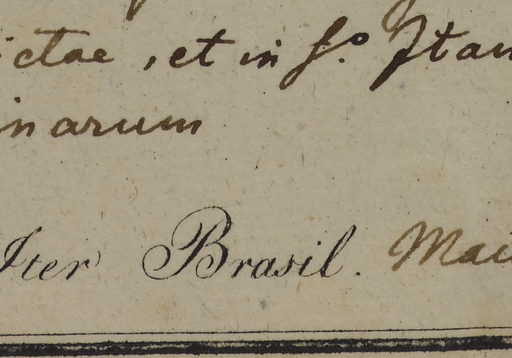 ictae, et in f.º Itan
inarum
Iter Brasil. Mai